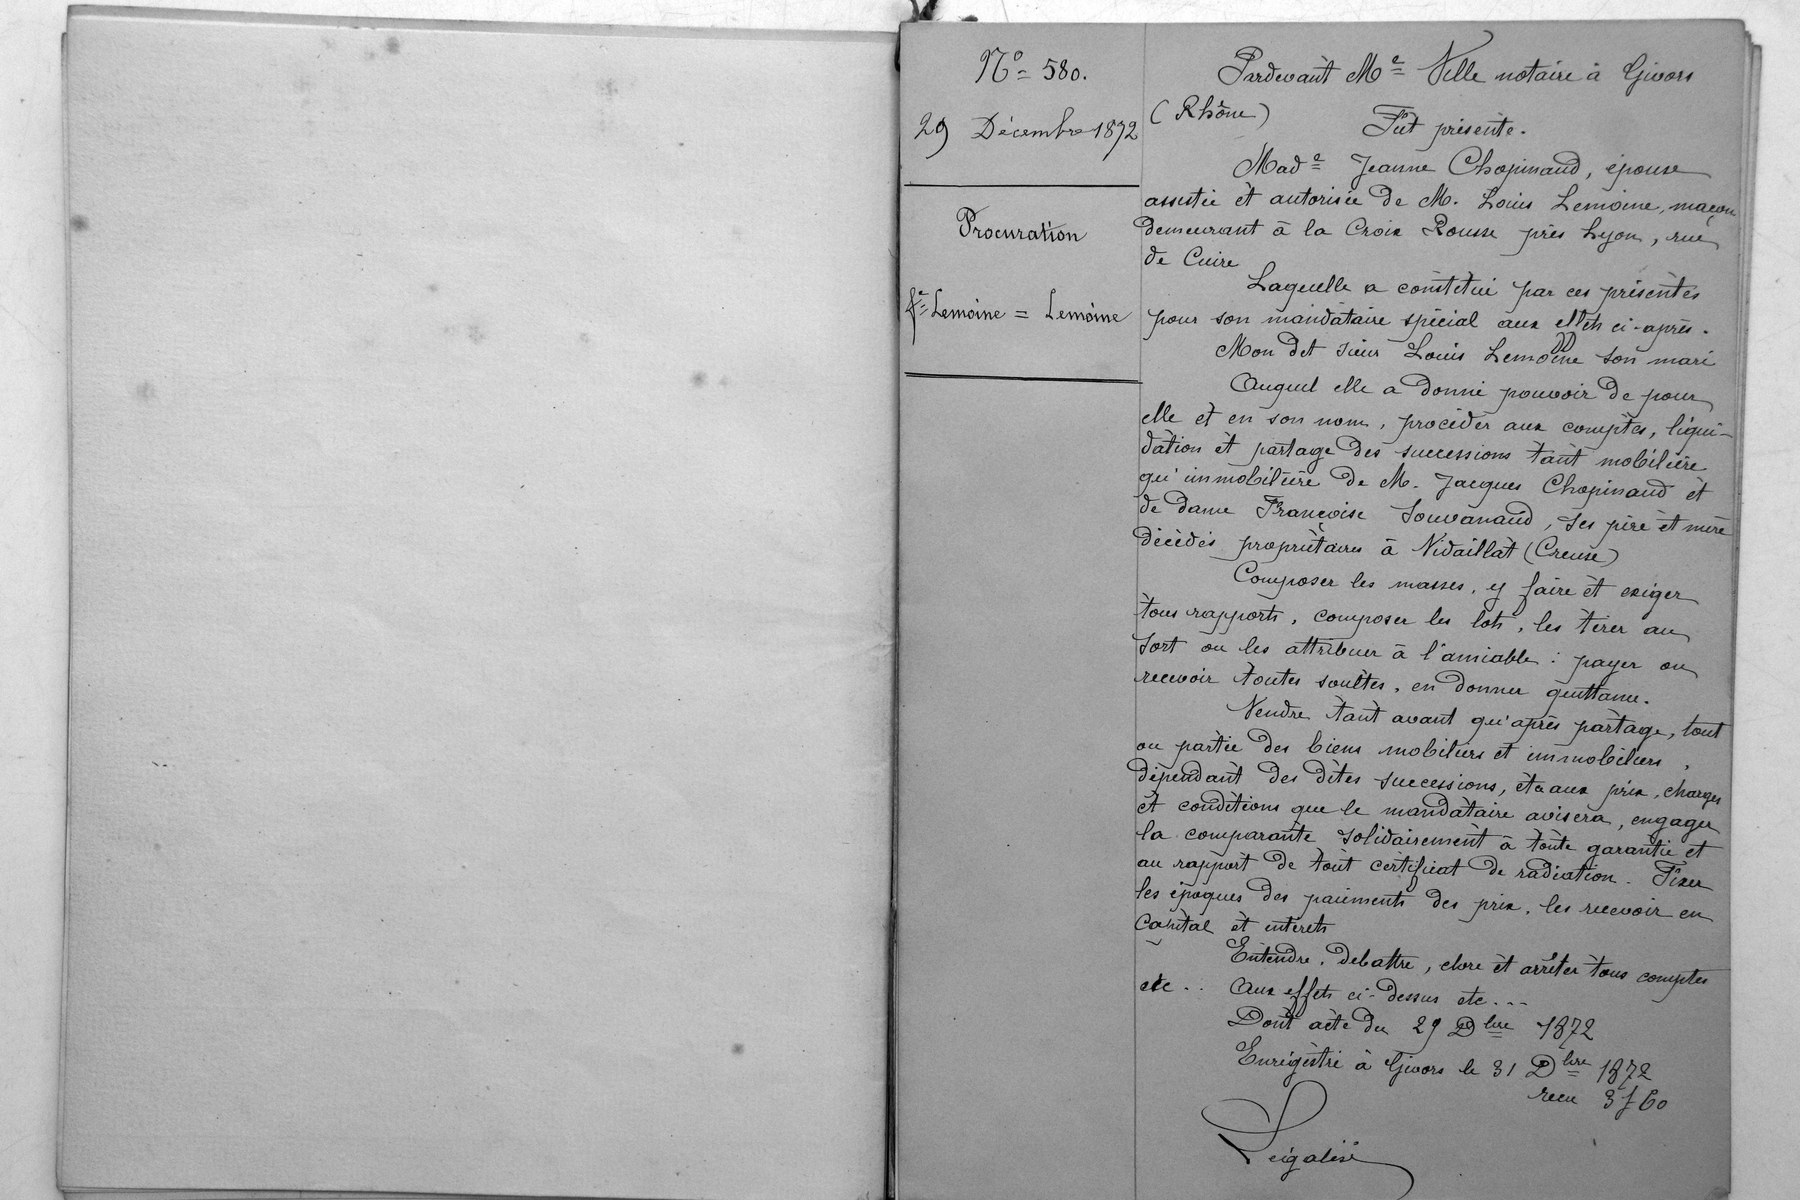 N° 580.
29 Décembre 1872
Procuration
fe Lemoine = Lemoine
Pardevant Me Ville notaire à Givors
(Rhône)
Fut présente.
Made Jeanne Chopinaud, épouse
assistée et autorisée de M. Louis Lemoine, maçon
demeurant à la Croix Rousse près Lyon, rue
de Cuire
Laquelle a constitué par ces présentes
pour son mandataire spécial aux effets ci-après.
Mon dit sieur Louis Lemoine son mari
Auquel elle a donné pouvoir de pour
elle et en son nom, procéder aux comptes, liqui-
dation et partage des successions tant mobilière
qu'immobilière de M. Jacques Chopinaud et
de dame Françoise Jouvanaud, ses père et mère
décédés propriétaires à Vidaillat (Creuse)
Composer les masses, y faire et exiger
tous rapports, composer les lots, les tirer au
sort ou les attribuer à l'amiable : payer ou
recevoir toutes soultes, en donner quittance.
Vendre tant avant qu'après partage, tout
ou partie des biens mobiliers et immobiliers,
dépendant des dites successions, et aux prix, charges
et conditions que le mandataire avisera, engager
la comparante solidairement à toute garantie et
au rapport de tout certificat de radiation. Fixer
les époques des paiements des prix, les recevoir en
capital et intérêts
Entendre, débattre, clore et arrêter tous comptes
etc.. Aux effets ci-dessus etc...
Dont acte du 29 Dbre 1872
Enregistré à Givors le 31 Dbre 1872
recu 3f60
Légalisé